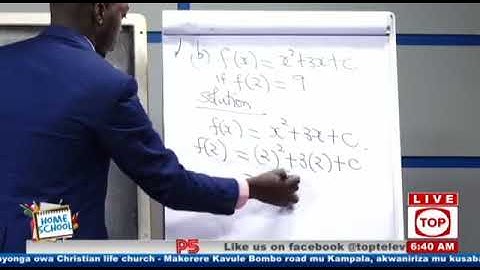 (b) f(x) = x²+3x+c.
if f(2) = 9
Solution
f(x) = x²+3x+c.
f(2) = (2)²+3(2)+c
HOME
SCHOOL
LIVE
TOP
P5
Like us on facebook @toptelev
6:40 AM
oyonga owa Christian life church - Makerere Kavule Bombo road mu Kampala, akwaniriza ku mu